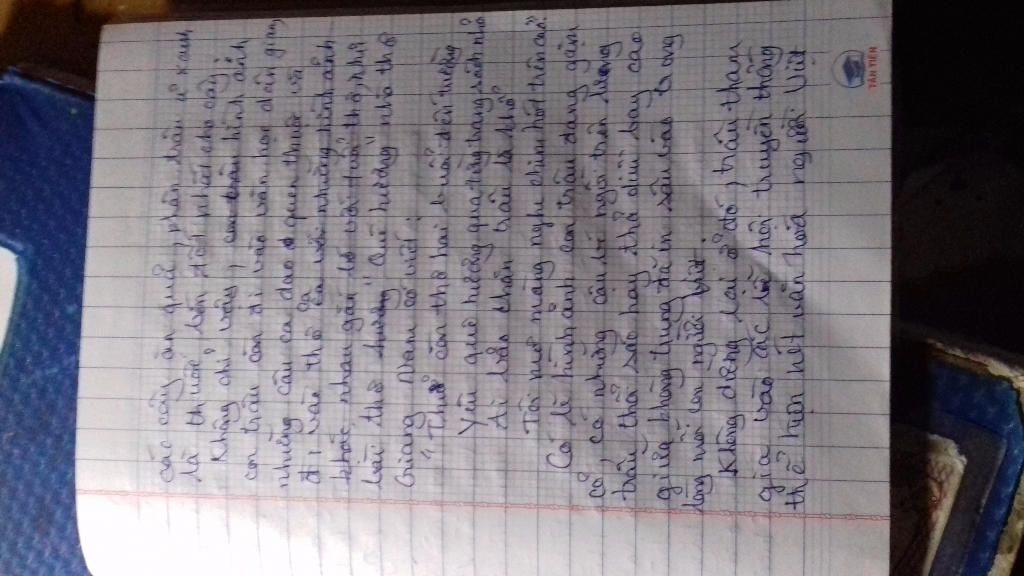 các cây ăn quả, phân trâu ủ xanh
là thuốc bón tốt nhất cho cây.
Không chỉ vậy, con trâu hình ảnh
con trâu còn đi vào văn học dân gian
những câu ca dao quen thuộc và
đi vào thơ ca với những hình ảnh
khác nhau gắn bó với tuổi thơ, như
bài thơ hương "Quê hương" nhà thơ
Giang Nam có viết:
"Thuở còn thơ hai buổi đến trường
Yêu quê hương qua từng trang sách nhỏ
Ai bảo chăn trâu là khổ
Tôi mơ màng nghe chim hót trên cao".
Có lẽ hình ảnh con trâu đang gặm
cỏ, có những cậu bé ngồi trên lưng
trâu thổi sáo hay thả diều bay cao
giữa không trung đã in sâu vào trong
lòng mỗi con người Việt
Không dừng lại ở đó, trâu tham
gia vào các lễ hội truyền thống
thể hiện nét văn hóa người Việt
TÂN TIẾN